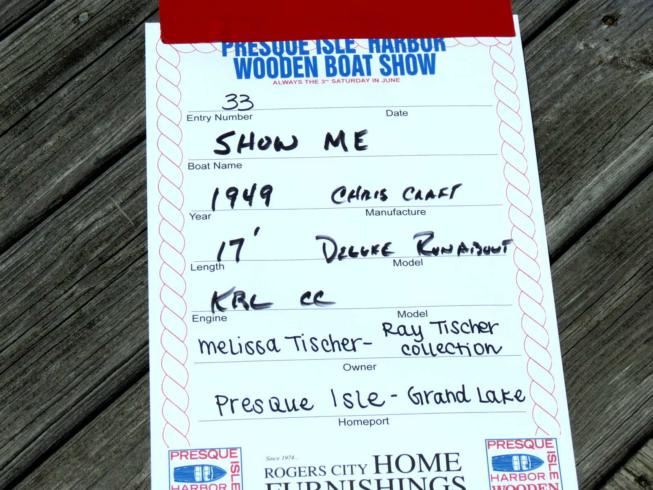 PRESQUE ISLE HARBOR
WOODEN BOAT SHOW
ALWAYS THE 3RD SATURDAY IN JUNE
33
Entry Number Date
SHOW ME
Boat Name
1949 CHRIS CRAFT
Year Manufacture
17' DELUXE RUNABOUT
Length Model
KRL CC
Engine Model
Melissa Tischer- Ray Tischer
collection
Owner
Presque Isle - Grand Lake
Homeport
PRESQUE
ISLE
HARBOR
WOODEN
Since 1974...
ROGERS CITY HOME
FURNISHINGS
PRESQUE
ISLE
HARBOR
WOODEN